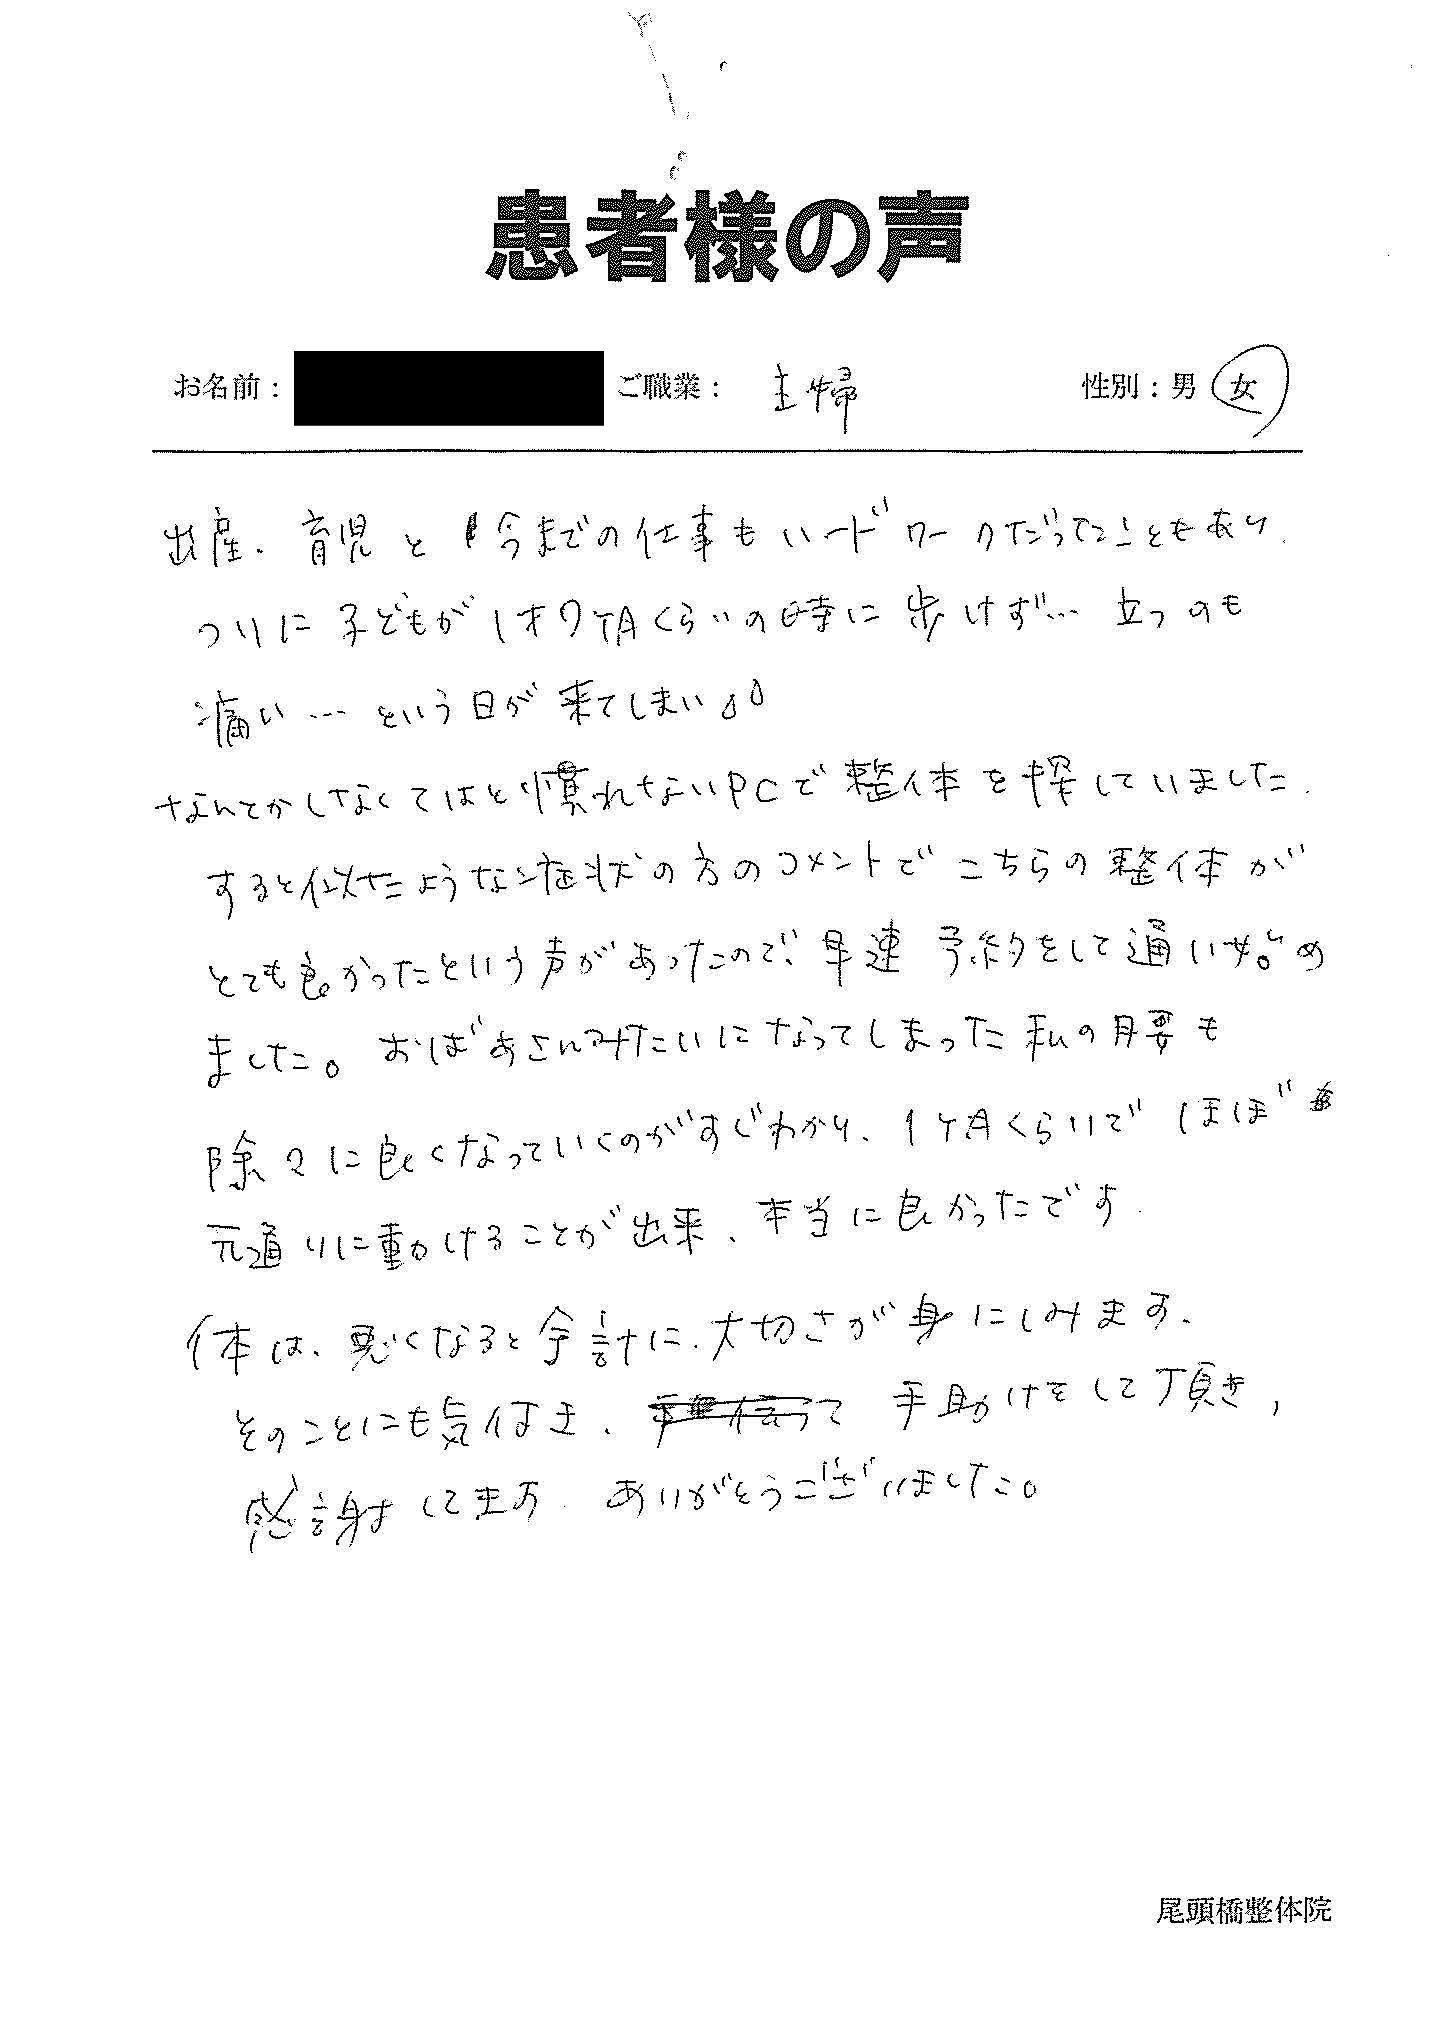 患者様の声
お名前： ご職業： 主婦 性別：男 女
出産、育児と今までの仕事もハードワークだったこともあり、
ついに子どもが1才7ヶ月くらいの時に歩けず… 立つのも
痛い… という日が来てしまい。。
なんとかしなくてはと慣れないPCで整体を探していました。
すると似たような症状の方のコメントでこちらの整体が
とても良かったという声があったので、早速予約をして通い始め
ました。おばあさんみたいになってしまった私の腰も
除々に良くなっていくのがすぐわかり、1ヶ月くらいでほぼ
元通りに動けることが出来、本当に良かったです。
体は、悪くなると余計に、大切さが身にしみます。
そのことにも気付き、手助けをして頂き、
感謝してます。ありがとうございました。
尾頭橋整体院